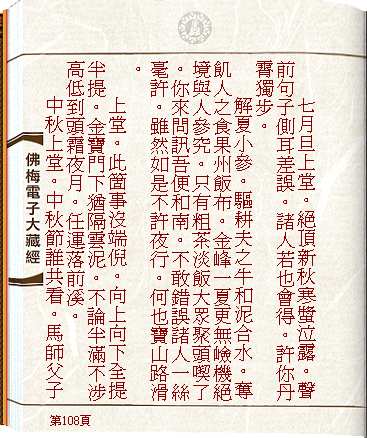 七月旦上堂。絕頂新秋寒螿泣露。聲
前句子側耳差誤。諸人若也會得。許你丹
霄獨步。
解夏小參。驅耕夫之牛和泥合水。奪
飢人之食果州飯布。金峰一夏更無嶮機絕
境與人參究。只有粗茶淡飯大眾聚頭喫了
。你來問訊吾便和南。不敢錯誤諸人一絲
毫許。雖然如是不許夜行。何也寶山路滑
。
上堂。此箇事沒端倪。向上向下全提
半提。金寶門下猶隔雲泥。不論半滿不涉
高低到頭霜夜月。任運落前溪。
中秋上堂。中秋節誰共看。馬師父子
佛梅電子大藏經
第108頁